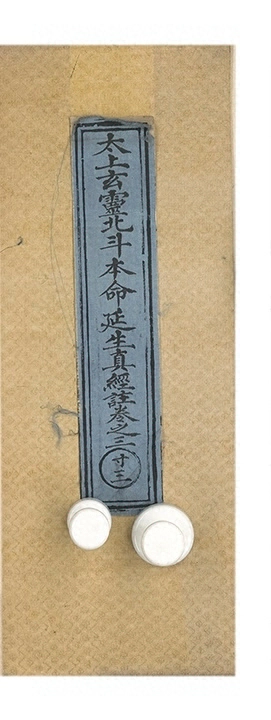 太上玄靈北斗本命延生真經註卷之三 寸三